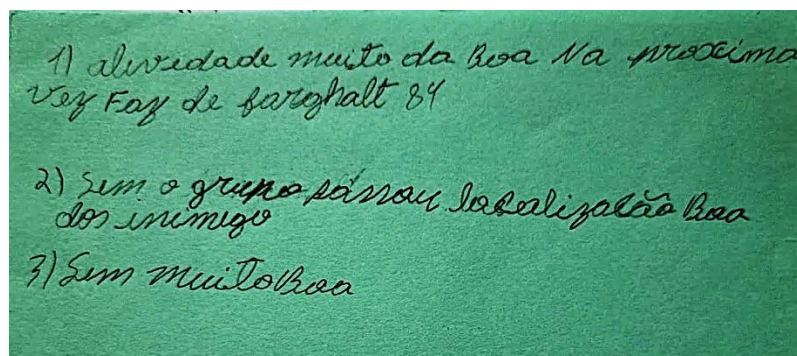 1) atividade muito da Boa Na proxima
vez Faz de farghalt 84
2) Sim o grupo passou localização Boa
dos inimigo
3) Sim muito Boa